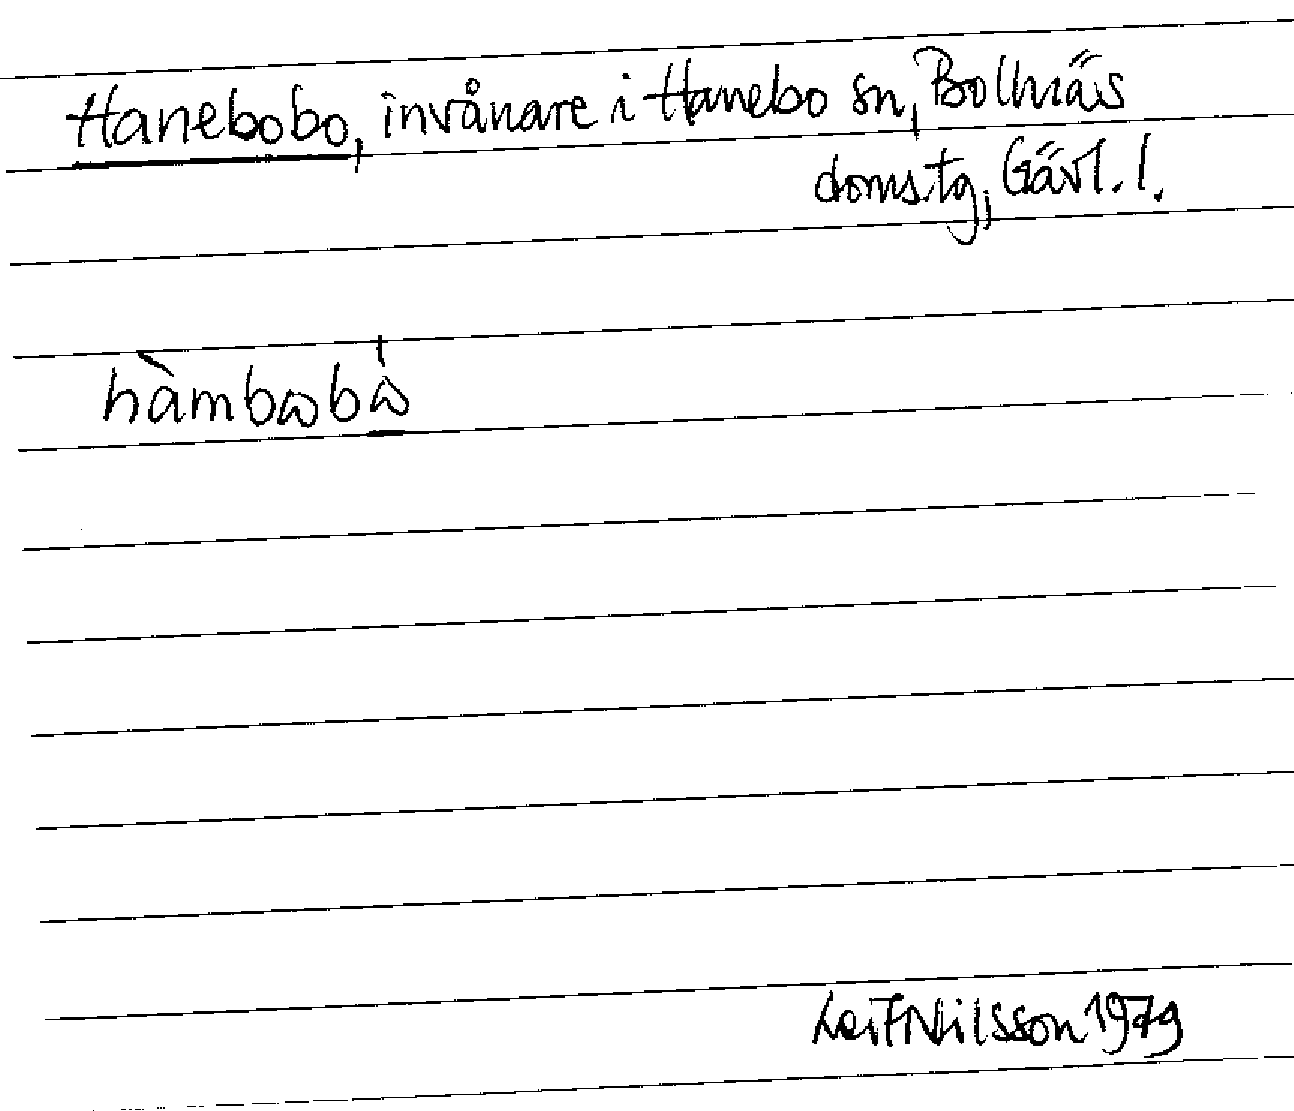 Hanebobo, invånare i Hanebo sn, Bollnäs
doms.tg, Gävl. l.
hàmbωbὼ
Leif Nilsson 1979